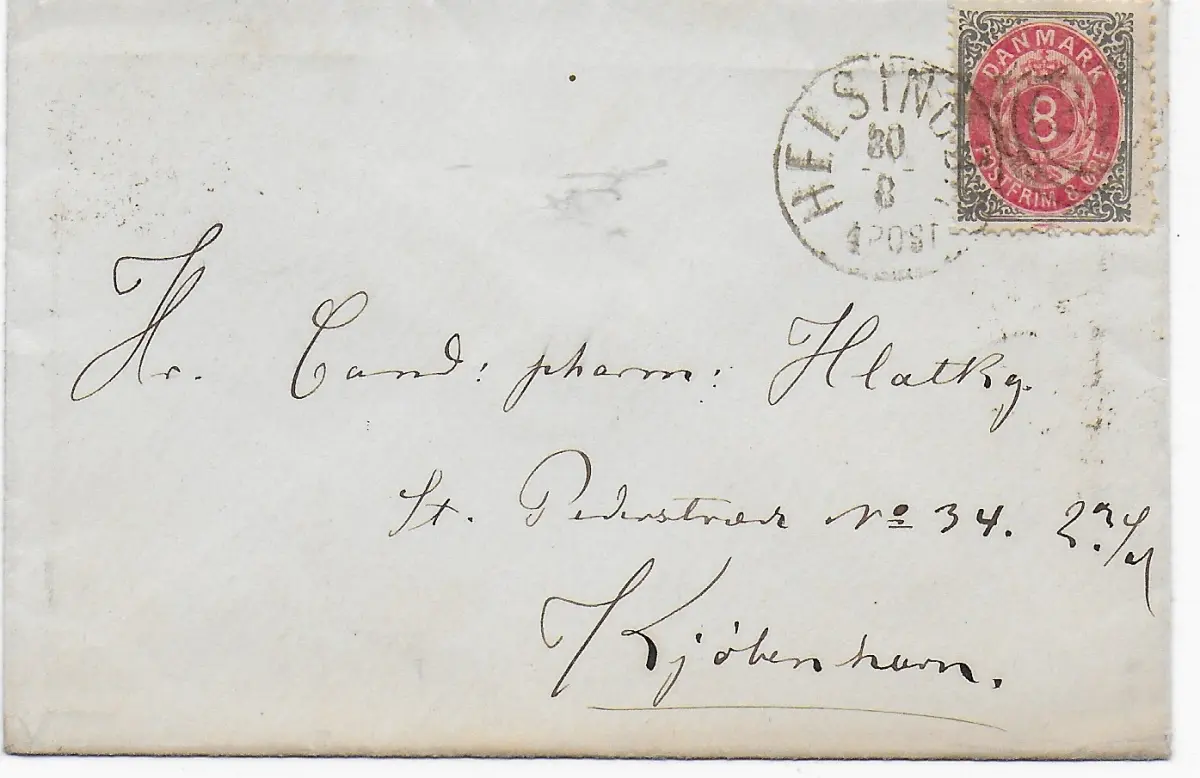 DANMARK
8
POSTFRIM. 8 ØRE
HELSING
30
8
POST
Hr. Cand: pharm:
St. Pederstræde No 34. 2
Kjöbenhavn.